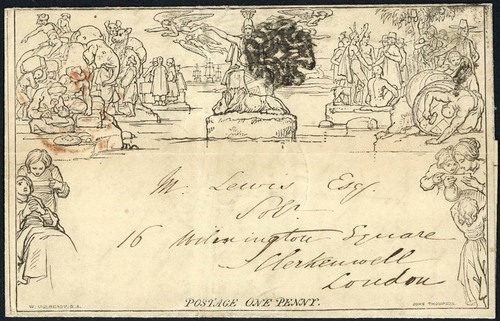 M. Lewis Esq
Solr
16 Wilmington Square
Clerkenwell
London
POSTAGE ONE PENNY.
W. MULREADY. R.A.
JOHN THOMPSON.